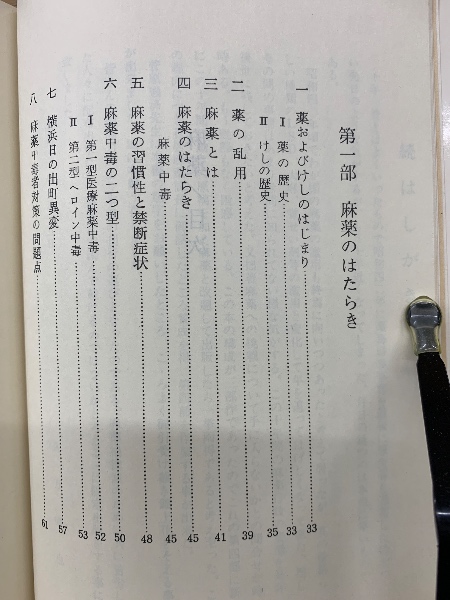 第一部 麻薬のはたらき
一 薬およびけしのはじまり……33
Ⅰ 薬の歴史……33
Ⅱ けしの歴史……35
二 薬の乱用……39
三 麻薬とは……41
四 麻薬のはたらき……45
麻薬中毒……45
五 麻薬の習慣性と禁断症状……48
六 麻薬中毒の二つ型……50
Ⅰ 第一型医療麻薬中毒……52
Ⅱ 第二型ヘロイン中毒……53
七 横浜日の出町異変……57
八 麻薬中毒者対策の問題点……61